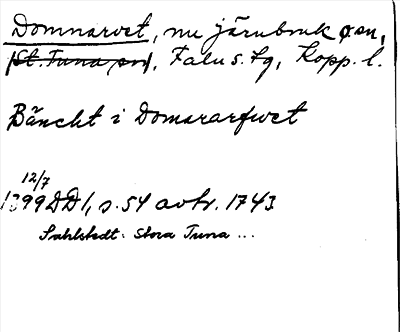 Domnarvet, nu järnbruk o. sn,
St. Tuna sn, Falu s. tg, Kopp. l.
Bäncht i Domararfwet
12/7
1399 DD 1, s. 54 avhr. 1743
Sahlstedt. Stora Tuna ...